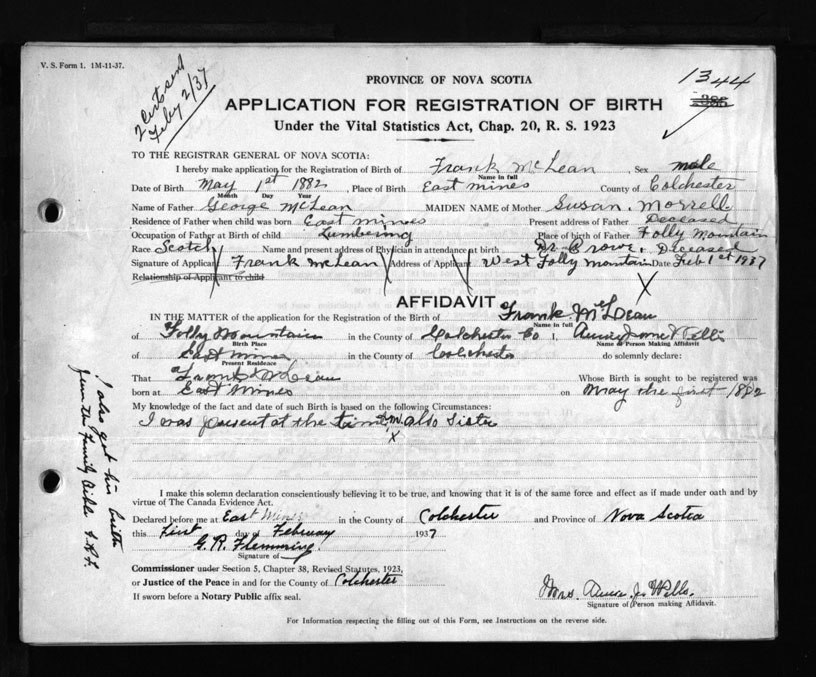 V. S. Form 1. 1M-11-37.
2 Certs sent
Feby 2/37
PROVINCE OF NOVA SCOTIA
1344
APPLICATION FOR REGISTRATION OF BIRTH
Under the Vital Statistics Act, Chap. 20, R. S. 1923
TO THE REGISTRAR GENERAL OF NOVA SCOTIA:
I hereby make application for the Registration of Birth of Frank McLean, Sex male
Name in full
Date of Birth May 1st 1882, Place of Birth East mines County of Colchester
Month Day Year
Name of Father George McLean MAIDEN NAME of Mother Susan. Morrell
Residence of Father when child was born East mines Present address of Father Deceased
Occupation of Father at Birth of child Lumbering Place of birth of Father Folly Mountain
Race Scotch Name and present address of Physician in attendance at birth Dr. Crowe. Deceased
Signature of Applicant Frank McLean Address of Applicant West Folly mountain Date Feb 1st 1937
Relationship of Applicant to child
X
AFFIDAVIT
IN THE MATTER of the application for the Registration of the Birth of Frank. McLean
Name in full
of Folly Mountain in the County of Colchester Co I, Annie
Birth Place Name of Person Making Affidavit
of East mines in the County of Colchester do solemnly declare:
Present Residence
That Frank McLean Whose Birth is sought to be registered was
born at East Mines on May the first 1882
My knowledge of the fact and date of such Birth is based on the following Circumstances:
I was present at the time also Sister
X
I also got his birth
from the Family Bible
I make this solemn declaration conscientiously believing it to be true, and knowing that it is of the same force and effect as if made under oath and by
virtue of The Canada Evidence Act.
Declared before me at East Mines in the County of Colchester and Province of Nova Scotia
this First day of February 1937
G. R. Flemming.
Signature of
Commissioner under Section 5, Chapter 38, Revised Statutes, 1923,
or Justice of the Peace in and for the County of Colchester
If sworn before a Notary Public affix seal.
Mrs. Annie J. Wells.
Signature of Person making Affidavit.
For Information respecting the filling out of this Form, see Instructions on the reverse side.